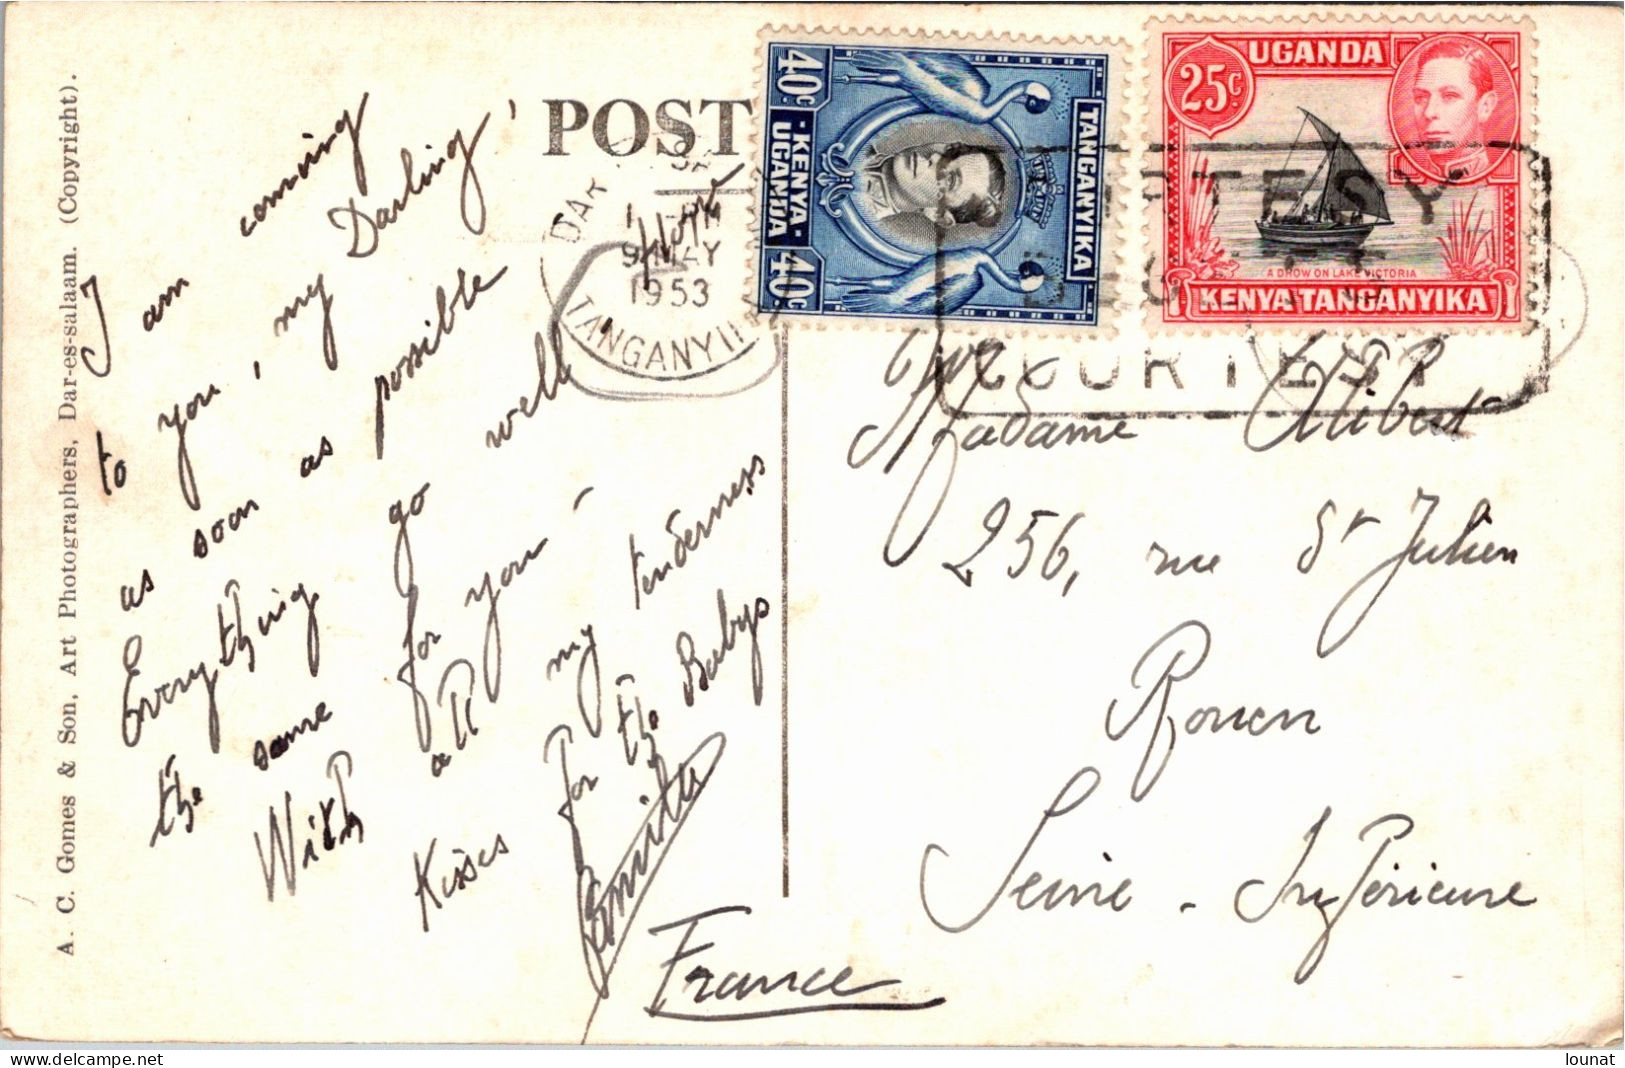 A. C. Gomes & Son, Art Photographers, Dar-es-salaam. (Copyright).
POST
I am coming
to you, my Darling'
as soon as possible
Everything go well
the same for you –
With all my tenderness
Kisses for the Babys
DAR
1 - PM
9 MAY
1953
TANGANYI
40c
TANGANYIKA
·KENYA·
UGANDA
40c
UGANDA
25c
A DHOW ON LAKE VICTORIA
KENYA TANGANYIKA
COURTESY
Madame Alibert
256, rue St Julien
Rouen
Seine - Inférieure
France
lounat